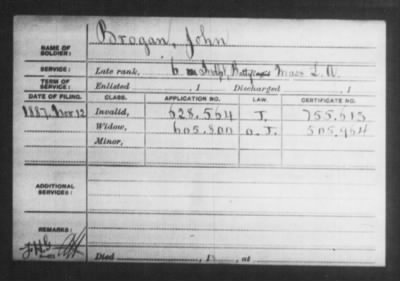 Brogan, John
NAME OF SOLDIER:
SERVICE: Late rank, Mass L. A.
TERM OF SERVICE: Enlisted , 1 Discharged , 1
DATE OF FILING. CLASS. APPLICATION NO. LAW. CERTIFICATE NO.
1887, Nov 12 Invalid, 628.564 J. 755.613
Widow, 605.800 a. J. 505.964
Minor,
ADDITIONAL SERVICES:
REMARKS:
Died , 1 , at